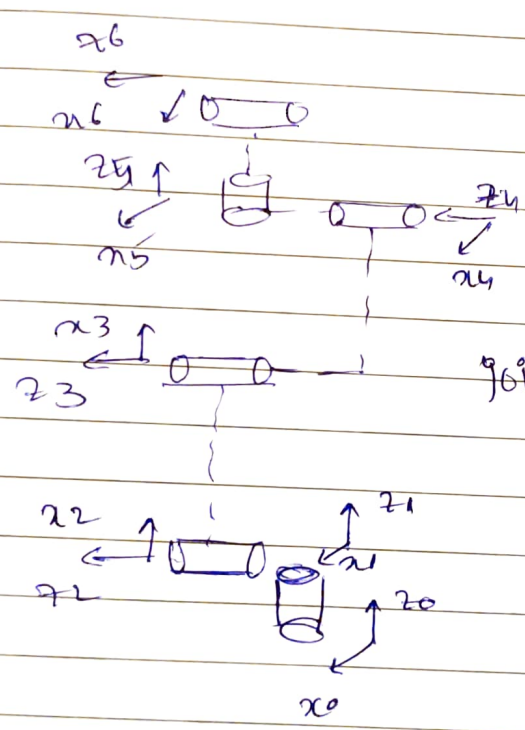 z6
x6
z5
x5
z4
x4
x3
z3
90°
x2
z2
z1
x1
z0
x0